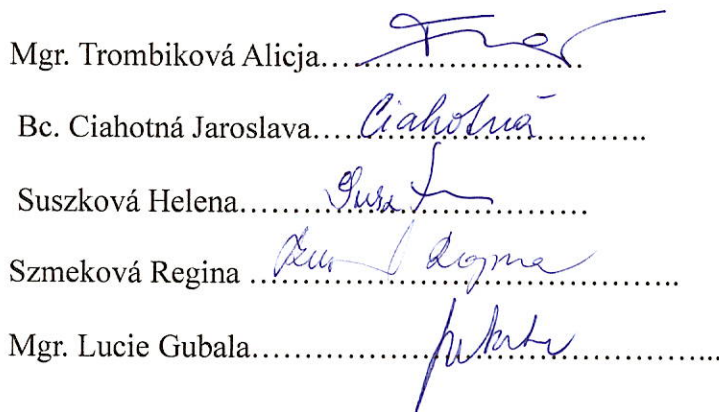 Mgr. Trombiková Alicja……………………
Bc. Ciahotná Jaroslava…. Ciahotná ………………..
Suszková Helena……………………………
Szmeková Regina ……………………………………..
Mgr. Lucie Gubala…………………………………………...